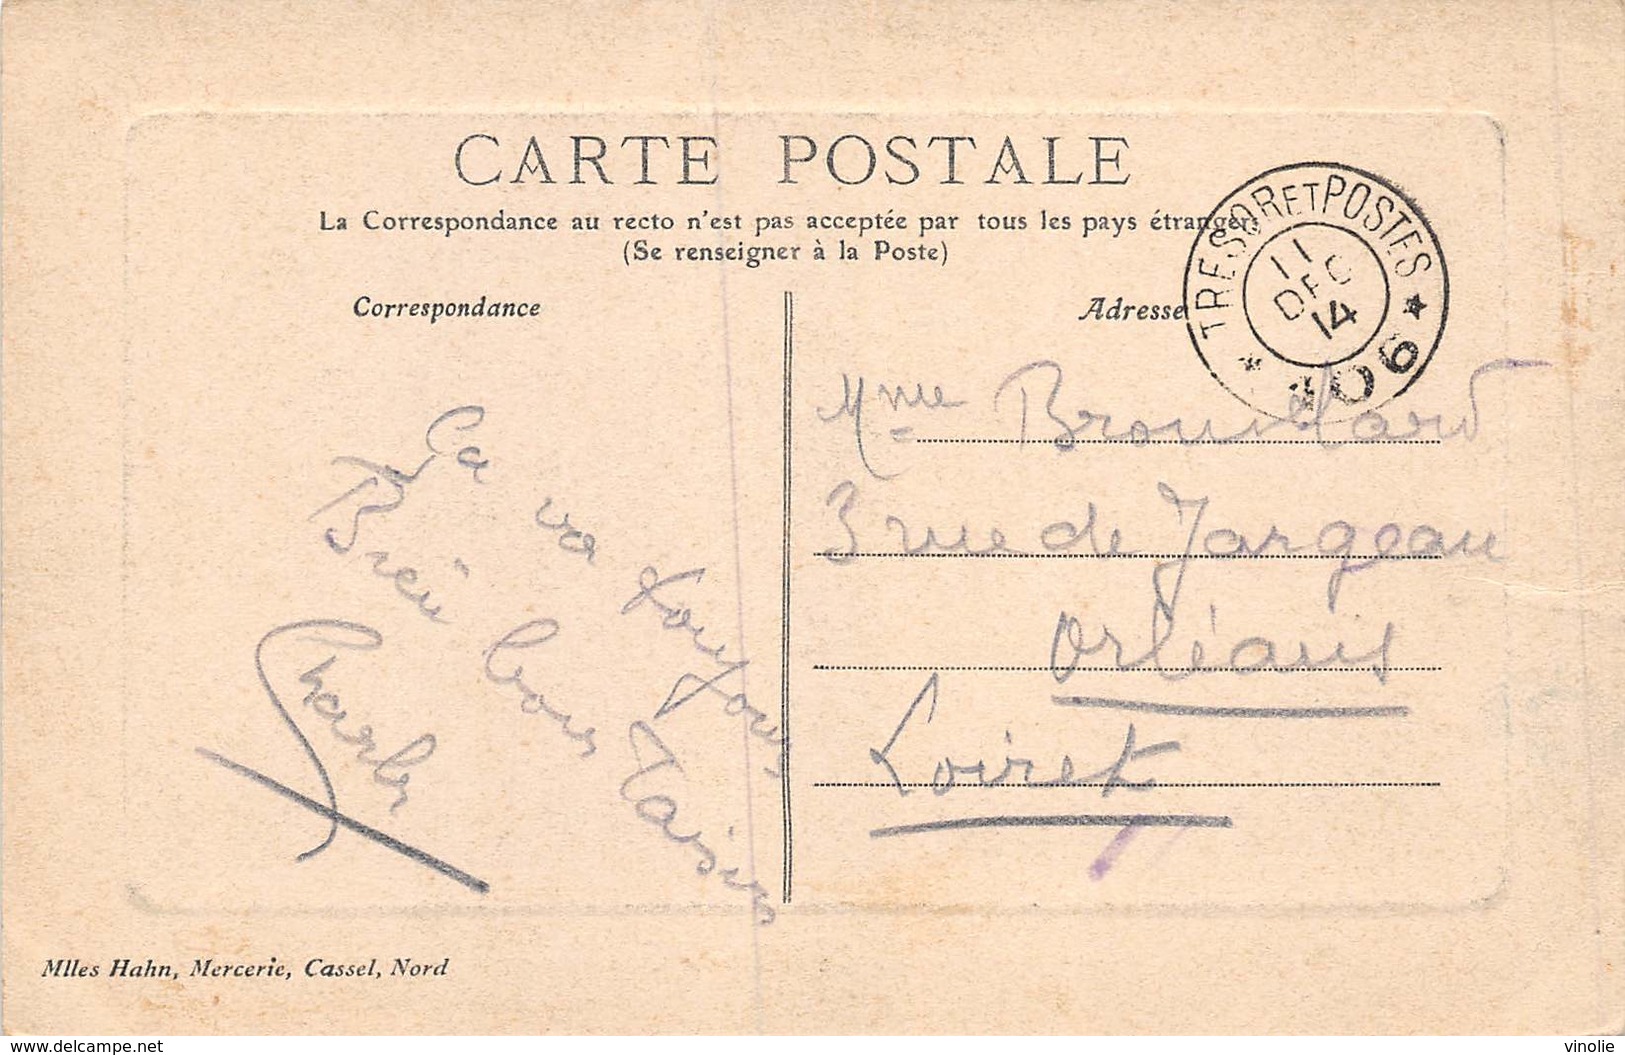 CARTE POSTALE
La Correspondance au recto n'est pas acceptée par tous les pays étrangers
(Se renseigner à la Poste)
Correspondance
Adresse
TRESOR ET POSTES
11
DEC
14
* 106 *
Ça va toujours
Bien bons
Charles
Mme Brouillard
3 rue de Jargeau
Orléans
Loiret
Mlles Hahn, Mercerie, Cassel, Nord
www.delcampe.net
vinolie